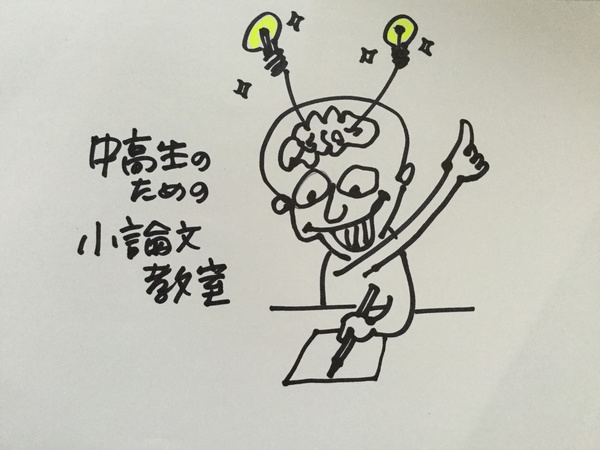 中高生の
ための
小論文
教室